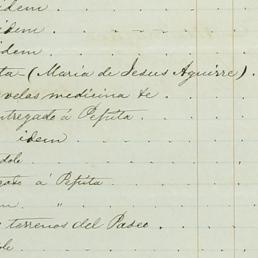 idem
idem
idem
ta-(Maria de Jesus Aguirre).
velas medicina &c.
ntregado á Pepita
idem
dole
gado á Pepita
"
terrenos del Paseo
dole